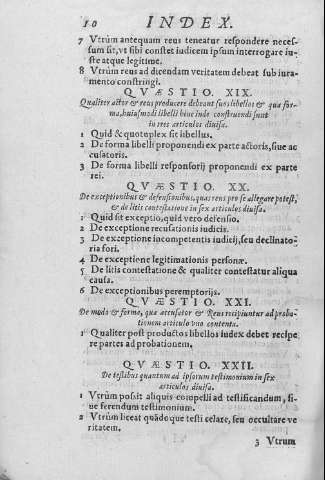 10 INDEX.
7 Vtrùm antequam reus teneatur respondere neces-
sum sit, vt sibi constet iudicem ipsum interrogare iu-
ste atque legitime.
8 Vtrùm reus ad dicendam veritatem debeat sub iura-
mento constringi.
QVÆSTIO. XIX.
Qualiter actor & reus producere debeant suos libellos & qua for-
ma, huiusmodi libelli hinc inde construendi sunt
in tres articulos diuisa.
1 Quid & quotuplex sit libellus.
2 De forma libelli proponendi ex parte actoris, siue ac
cusatoris.
3 De forma libelli responsorij proponendi ex parte
rei.
QVÆSTIO. XX.
De exceptionibus & defensionibus, quas reus pro se allegare potest,
& de litis contestatione in sex articulos diuisa.
1 Quid sit exceptio, quid vero defensio.
2 De exceptione recusationis iudicis.
3 De exceptione incompetentis iudicij, seu declinato-
ria fori.
4 De exceptione legitimationis personæ.
5 De litis contestatione & qualiter contestatur aliqua
causa.
6 De exceptionibus peremptorijs.
QVÆSTIO. XXI.
De modo & forma, qua accusator & Reus recipiuntur ad proba-
tionem articulo vno contenta.
1 Qualiter post productos libellos iudex debet recipe
re partes ad probationem.
QVÆSTIO. XXII.
De testibus quantum ad ipsorum testimonium in sex
articulos diuisa.
1 Vtrùm possit aliquis compelli ad testificandum, si-
ue ferendum testimonium.
2 Vtrùm liceat quãdoque testi celare, seu occultare ve
ritatem.
3 Vtrum